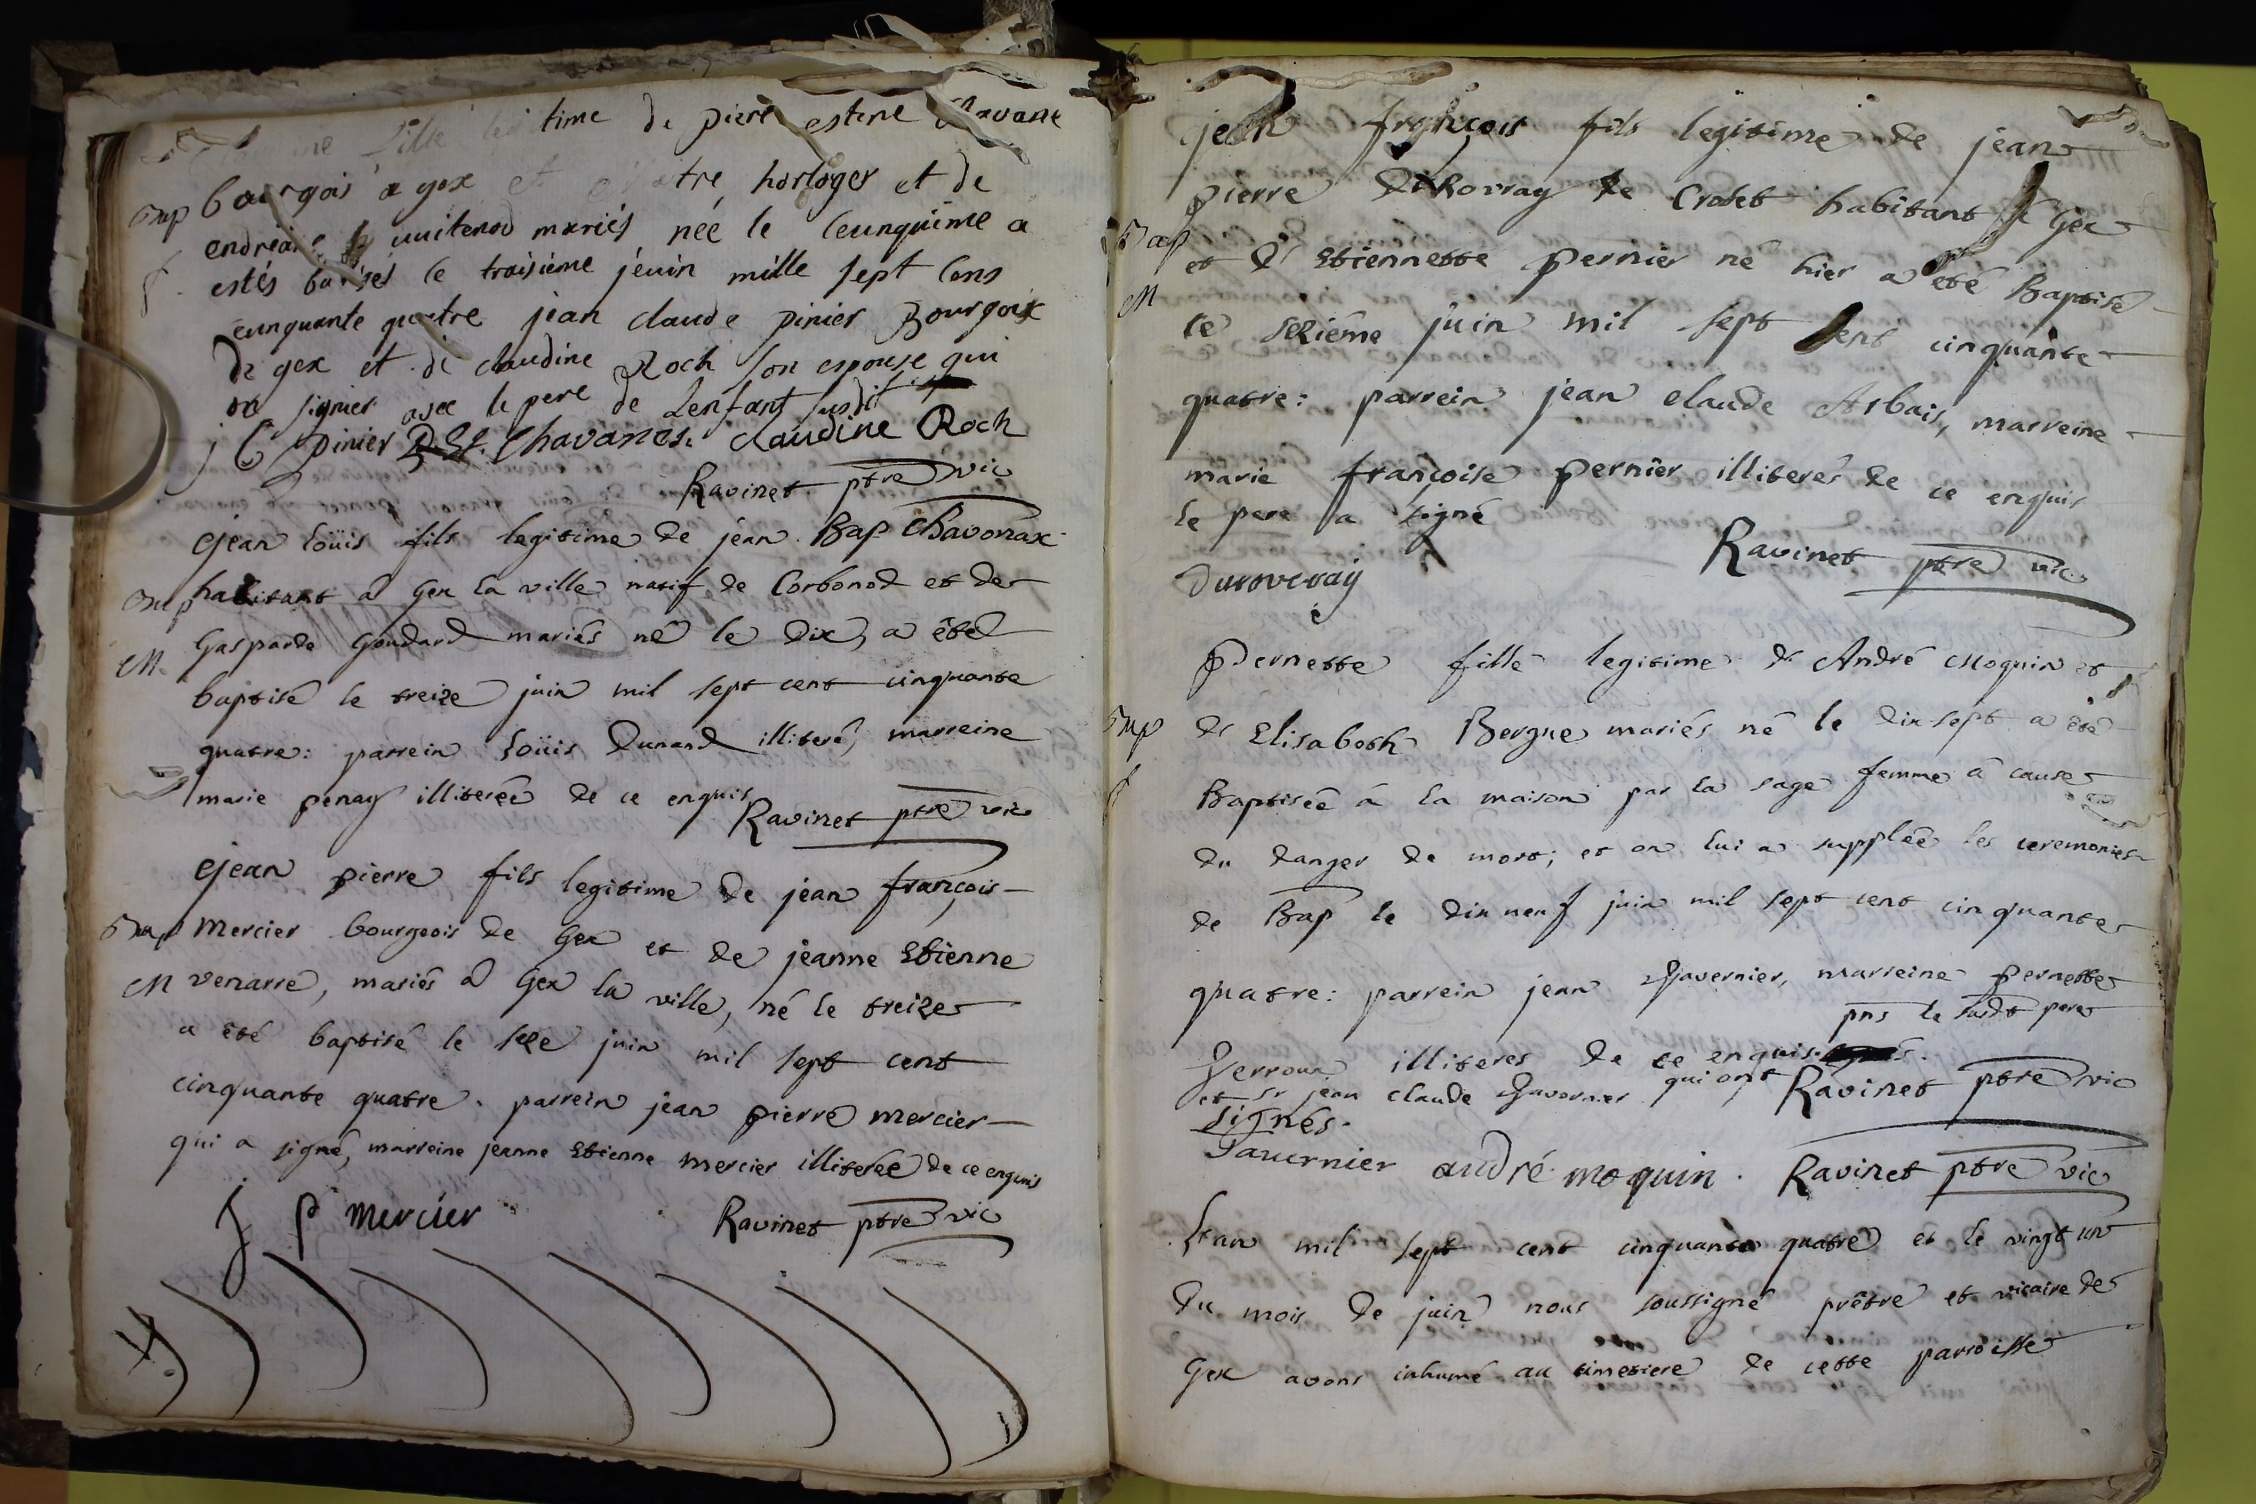 fille legitime de piere estene Chavane
Bap bourgois a gex et maitre horloger et de
andreane vuitenod mariés née le ceunquime a
f. estés batisés le troisieme jeuin mille sept cens
ceunquante quatre jean claude pinier Bourgois
de gex et de claudine Roch son espouse qui
on signier avec le pere de Lenfant susdit
j C pinier P. Et. Chavanes. claudine Roch
Ravinet ptre vic
jean Loüis fils legitime de jean Bap chavonax
Bap habitant à Gex la ville natif de Corbonod et de
M. Gasparde Goudard mariés né le dix, a été
baptisé le treize juin mil sept cent cinquante
quatre: parrein Loüis Dunand illiteré, marreine
marie penay illiterée de ce enquis
Ravinet ptre vic
jean pierre fils legitime de jean françois
Bap Mercier bourgeois de Gex et de jeanne Etienne
M venarre, mariés à Gex la ville, né le treize
a été baptisé le seze juin mil sept cent
cinquante quatre. parrein jean pierre mercier
qui a signé, marreine jeanne Etienne Mercier illiterée de ce enquis
j p mercier Ravinet ptre vic
jean françois fils legitime de jean
pierre DuRovray de Crozet habitant à Gex
Bap et d' Etiennette pernier né hier a été Baptisé
M le sezième juin mil sept cent cinquante
quatre: parrein jean claude Arbais, marreine
marie françoise pernier illiterés de ce enquis
le pere a signé
Ravinet ptre vic
Duroveray
Pernette fille legitime d' André Moquin et
Bap d' Elisabeth Bergue mariés né le dix sept a été
f Baptisée à la maison par la sage femme à cause
du danger de mort; et on lui a supplée les ceremonies
de Bap le dix neuf juin mil sept cent cinquante
quatre: parrein jean Tavernier, marreine pernette
pns le susdt pere
Perroux illiteres de ce enquis
et Sr jean claude Tavernier qui ont Ravinet ptre vic
signés.
Tauernier andré moquin. Ravinet ptre vic
L'an mil sept cent cinquante quatre et le vingt un
du mois de juin nous soussigné prêtre et vicaire de
Gex avons inhumé au cimetiere de cette parroisse